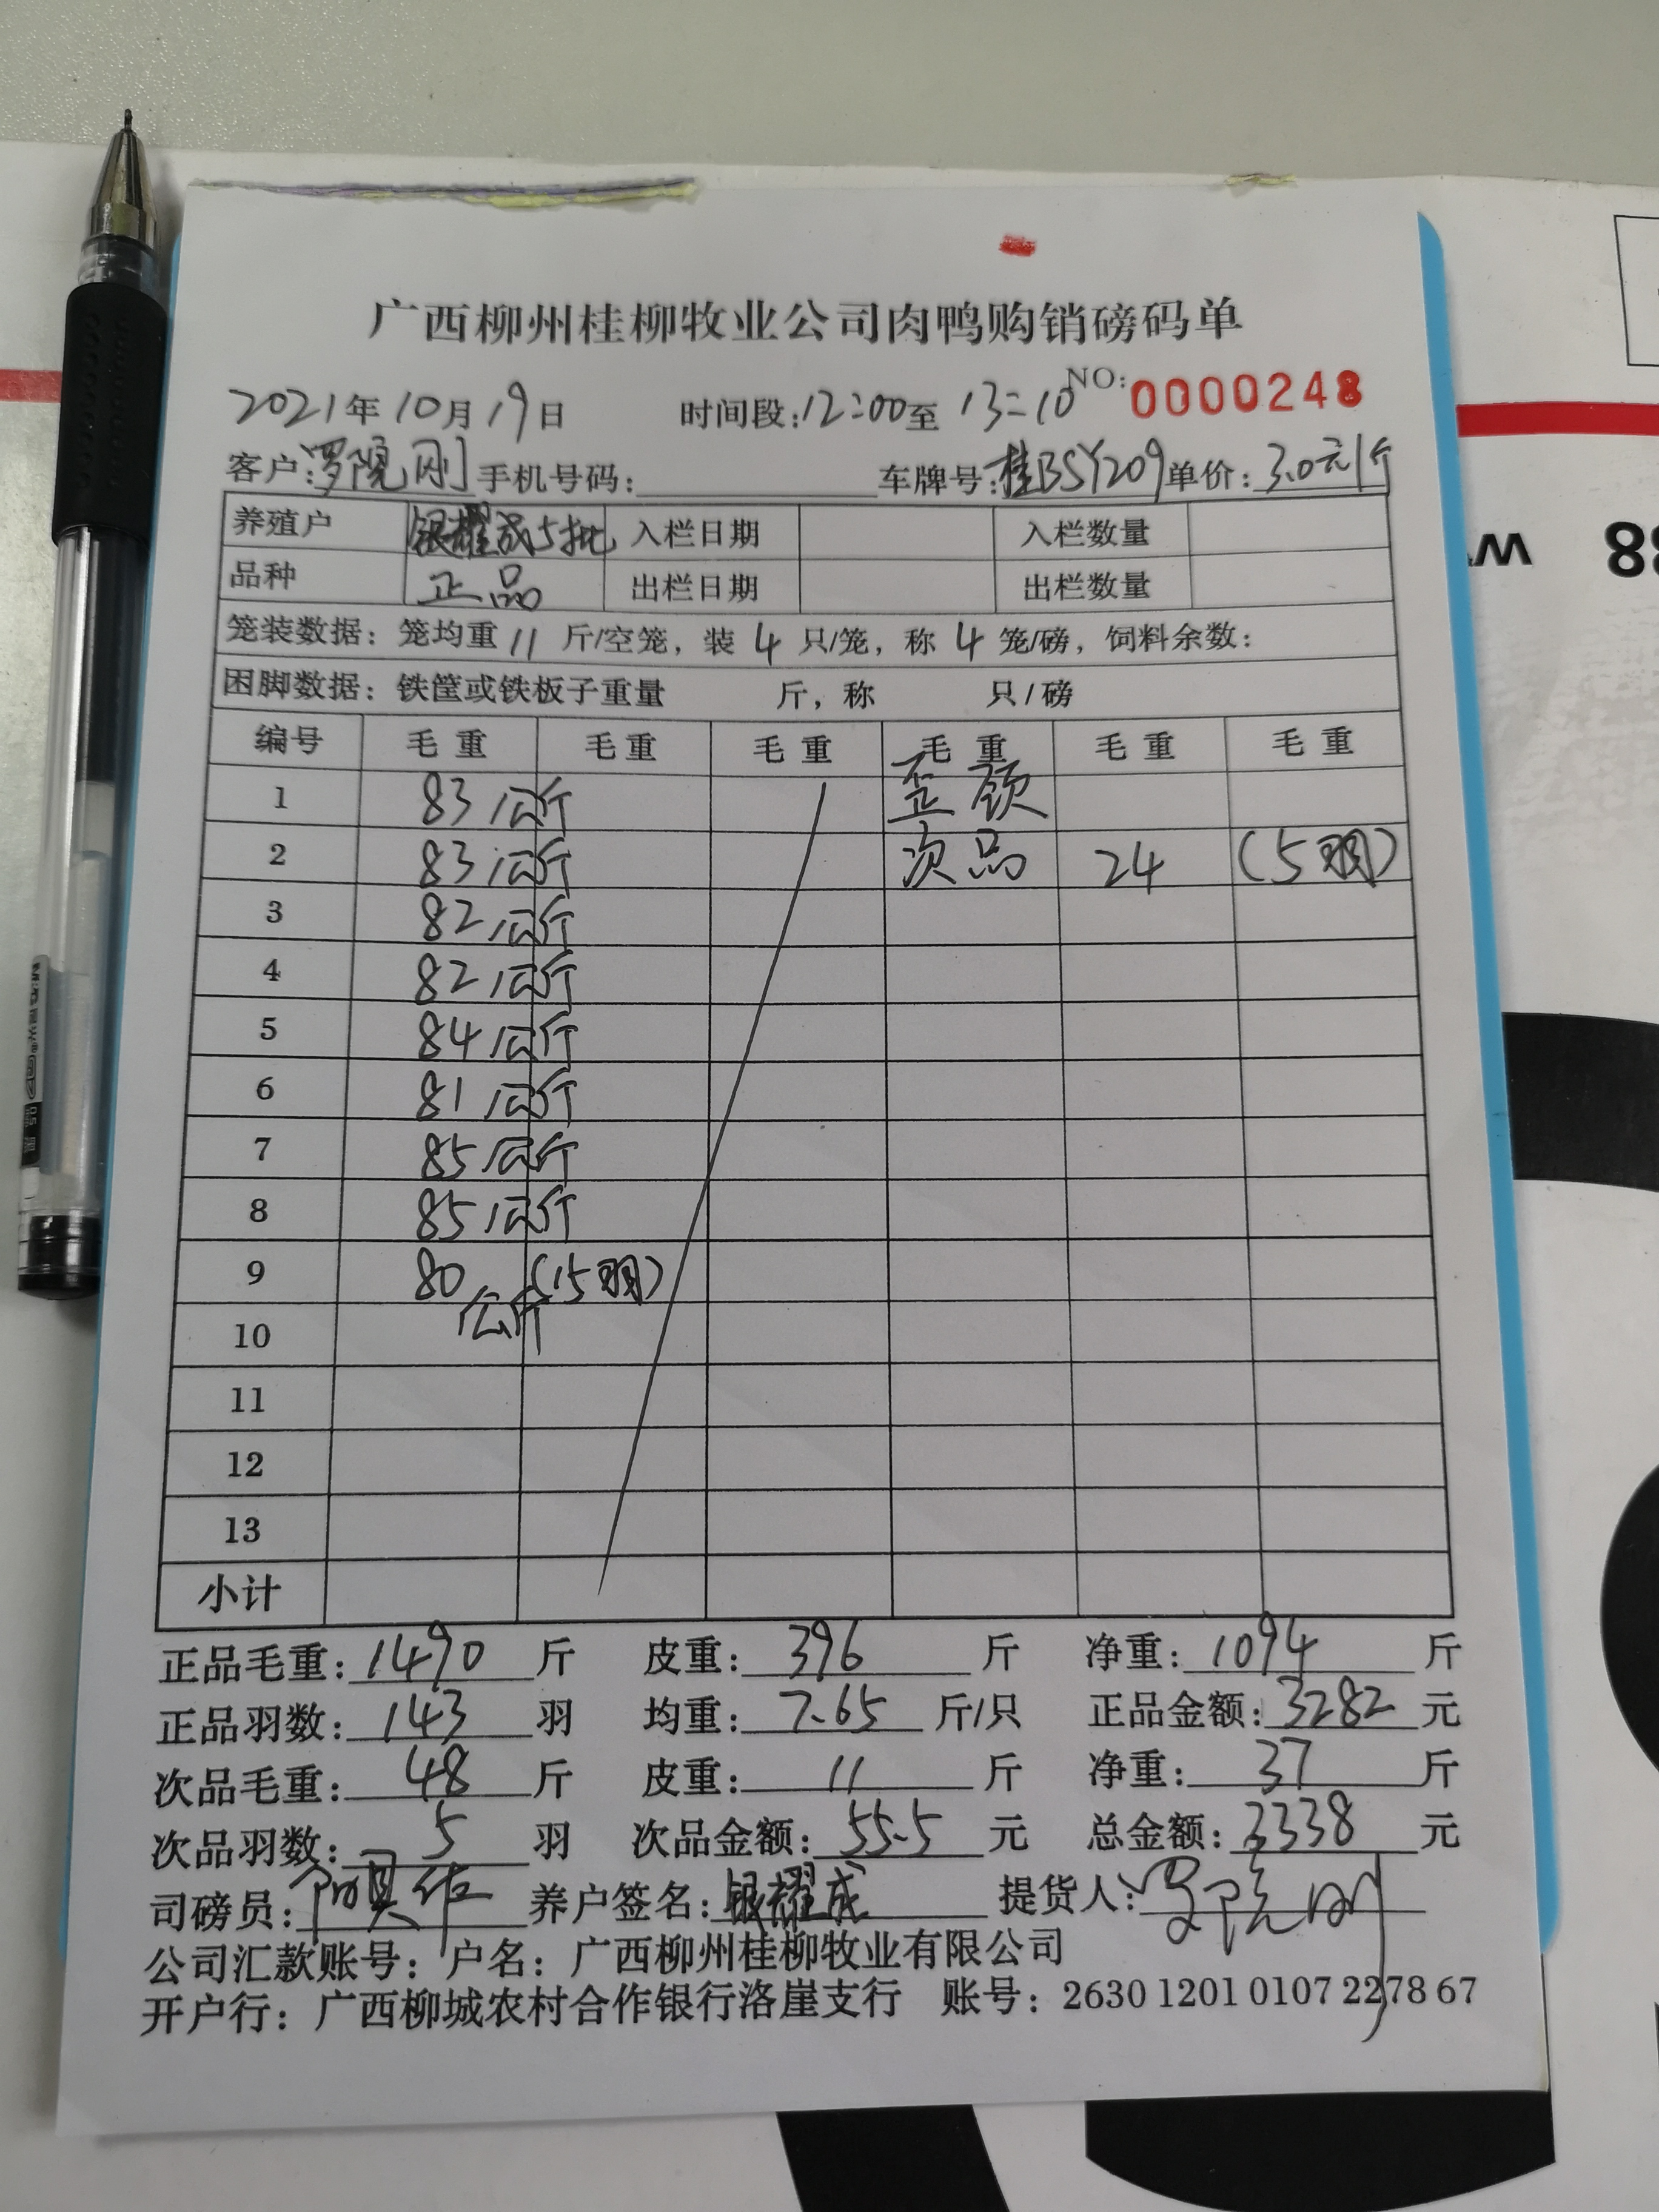 广西柳州桂柳牧业公司肉鸭购销磅码单
NO: 0000248
2021年10月19日 时间段:12:00至13:10
客户:罗院刚 手机号码: 车牌号:桂BSY209 单价:3.0元/斤
养殖户 银耀成5批 入栏日期 入栏数量
品种 正品 出栏日期 出栏数量
笼装数据: 笼均重11斤/空笼, 装4只/笼, 称4笼/磅, 饲料余数:
困脚数据: 铁筐或铁板子重量 斤, 称 只/磅
编号 毛重 毛重 毛重 毛重 毛重 毛重
1 83公斤 歪颈
2 83公斤 次品 24 (5羽)
3 82公斤
4 82公斤
5 84公斤
6 81公斤
7 85公斤
8 85公斤
9 80公斤 (15羽)
10
11
12
13
小计
正品毛重:1490斤 皮重:396斤 净重:1094斤
正品羽数:143羽 均重:7.65斤/只 正品金额:3282元
次品毛重:48斤 皮重:11斤 净重:37斤
次品羽数:5羽 次品金额:55.5元 总金额:3338元
司磅员: 养户签名:银耀成 提货人:罗院刚
公司汇款账号: 户名: 广西柳州桂柳牧业有限公司
开户行: 广西柳城农村合作银行洛崖支行 账号: 2630 1201 0107 2278 67